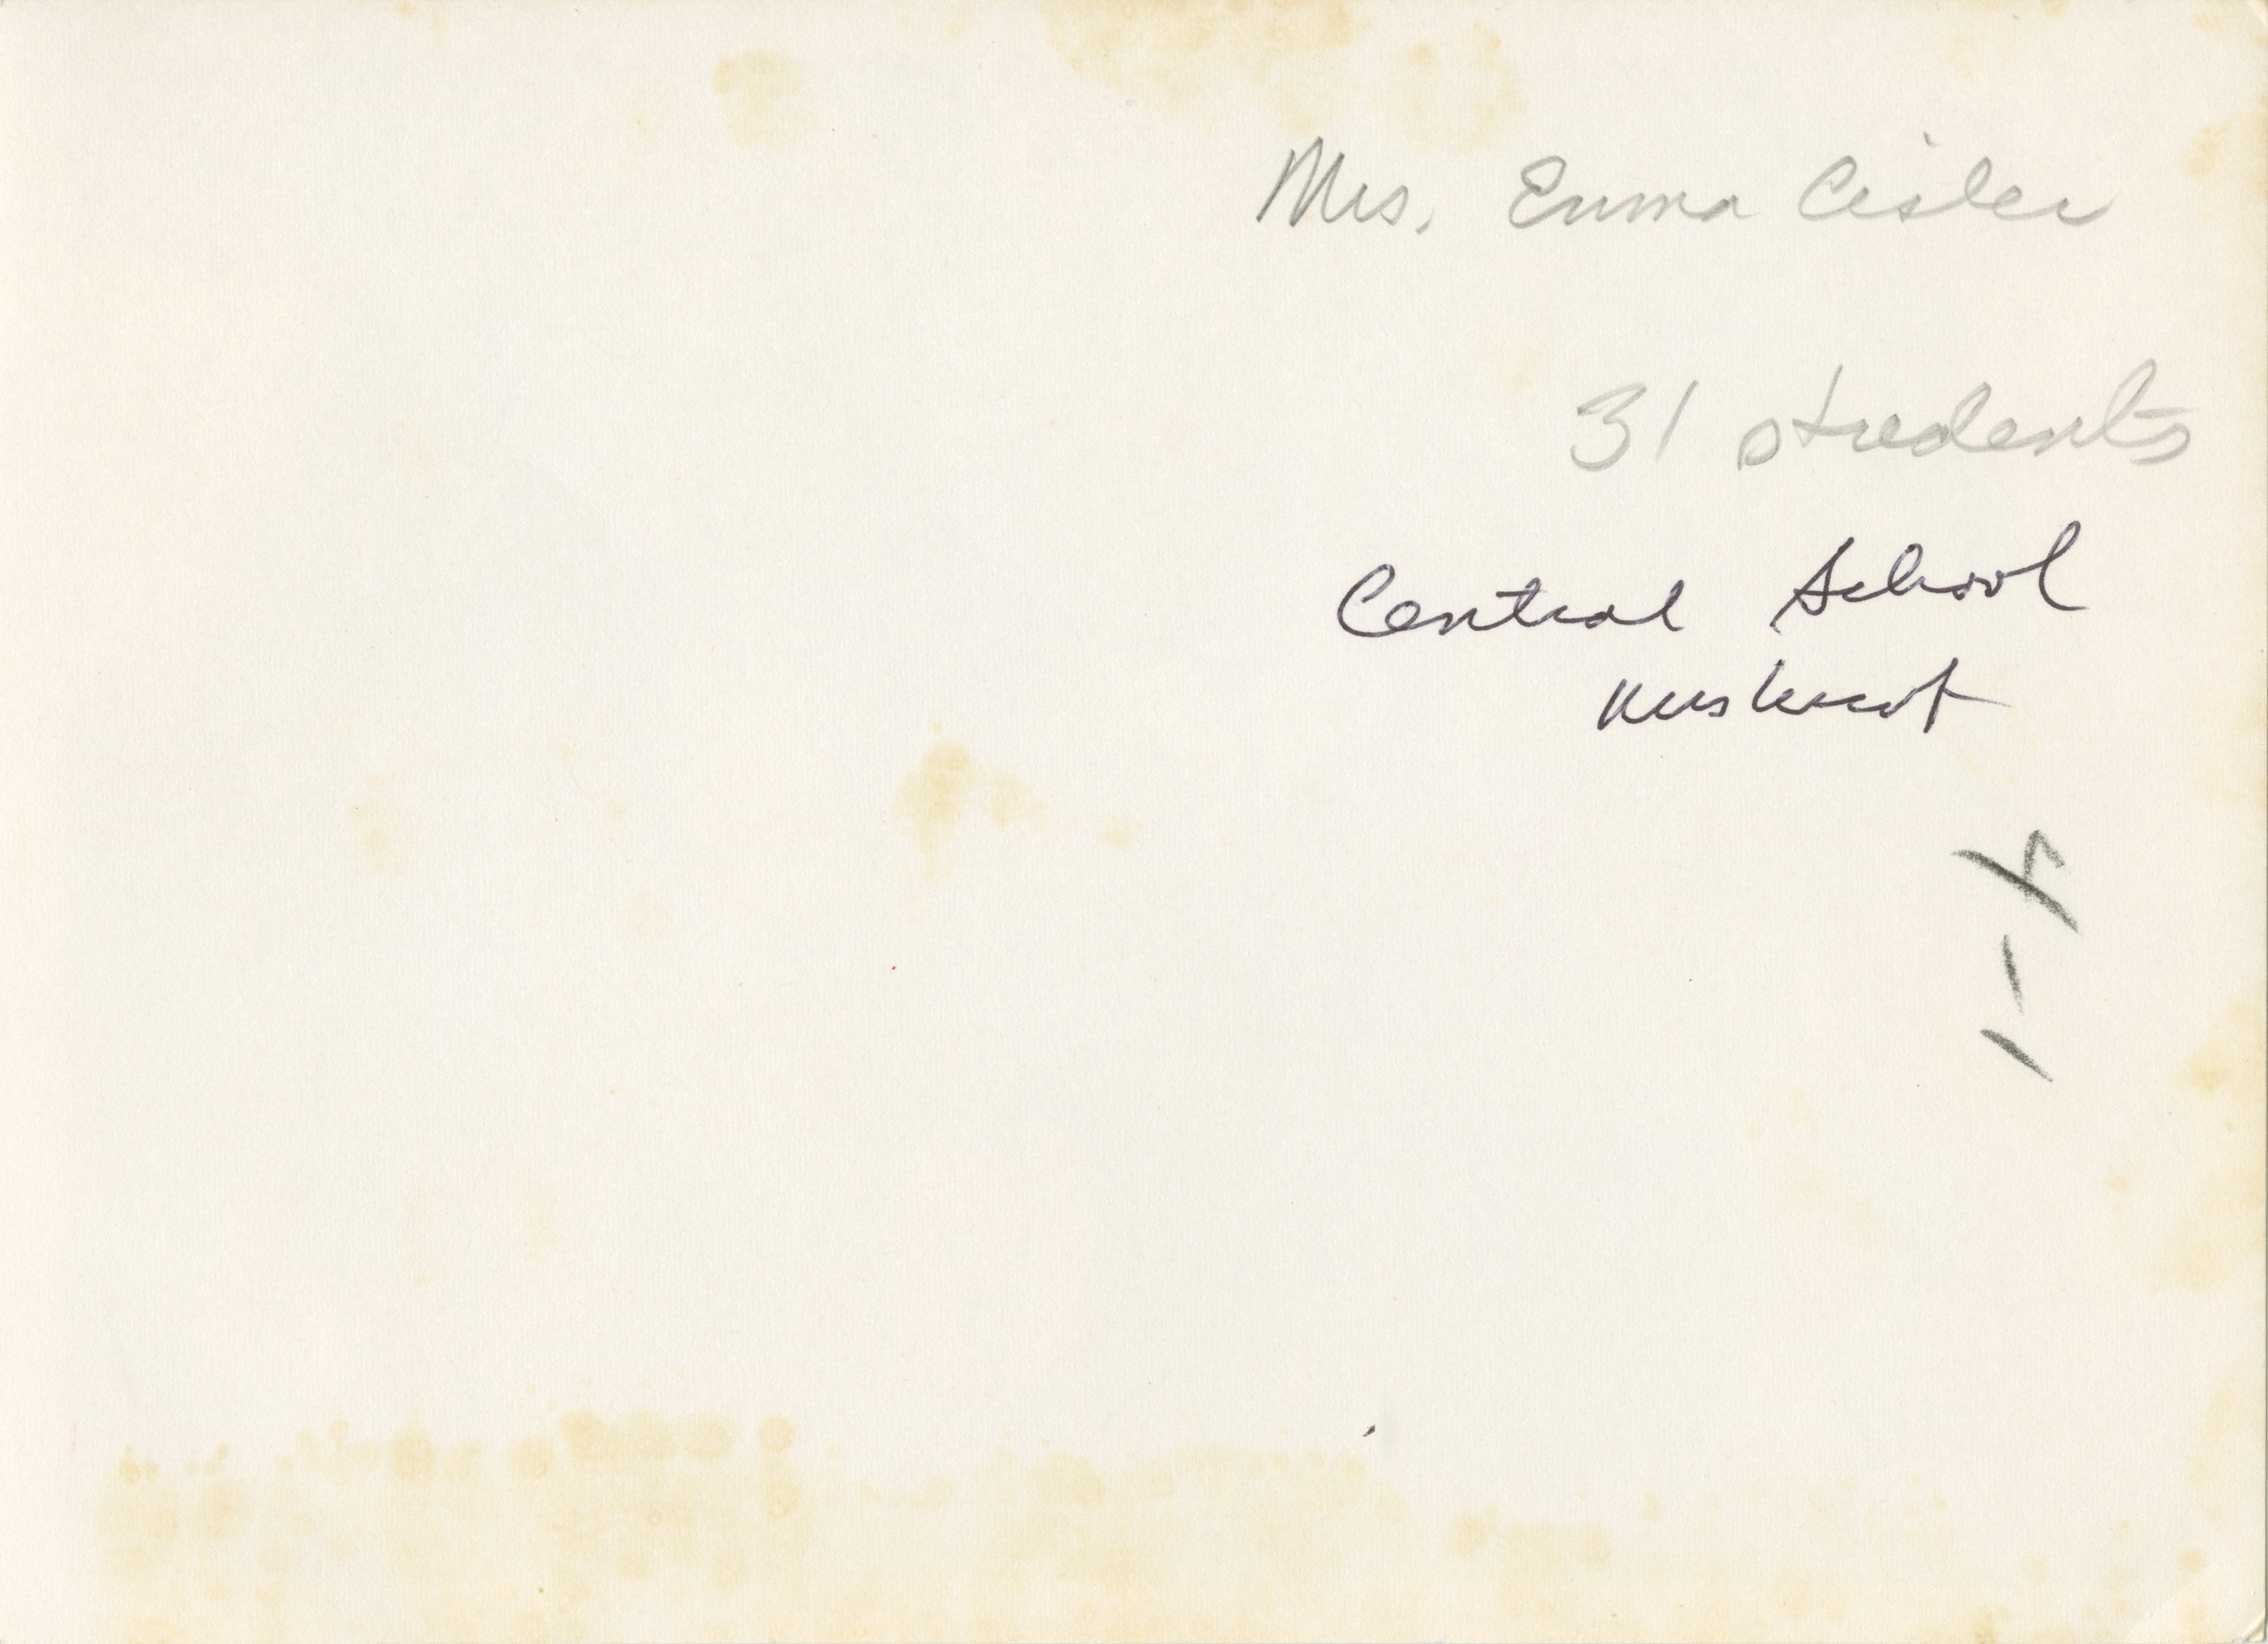 Mrs. Emma Cisler
31 students
Central School
1-4